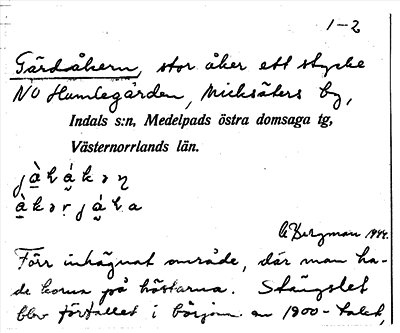 1-2
Gärdsåkern, stor åker ett stycke
NO Humlegården, Micksäters by,
Indals s:n, Medelpads östra domsaga tg,
Västernorrlands län.
G Bergman 1944.
Förr inhägnat område, där man ha-
de korna på höstarna. Stängslet
blev förfallet i början av 1900-talet,